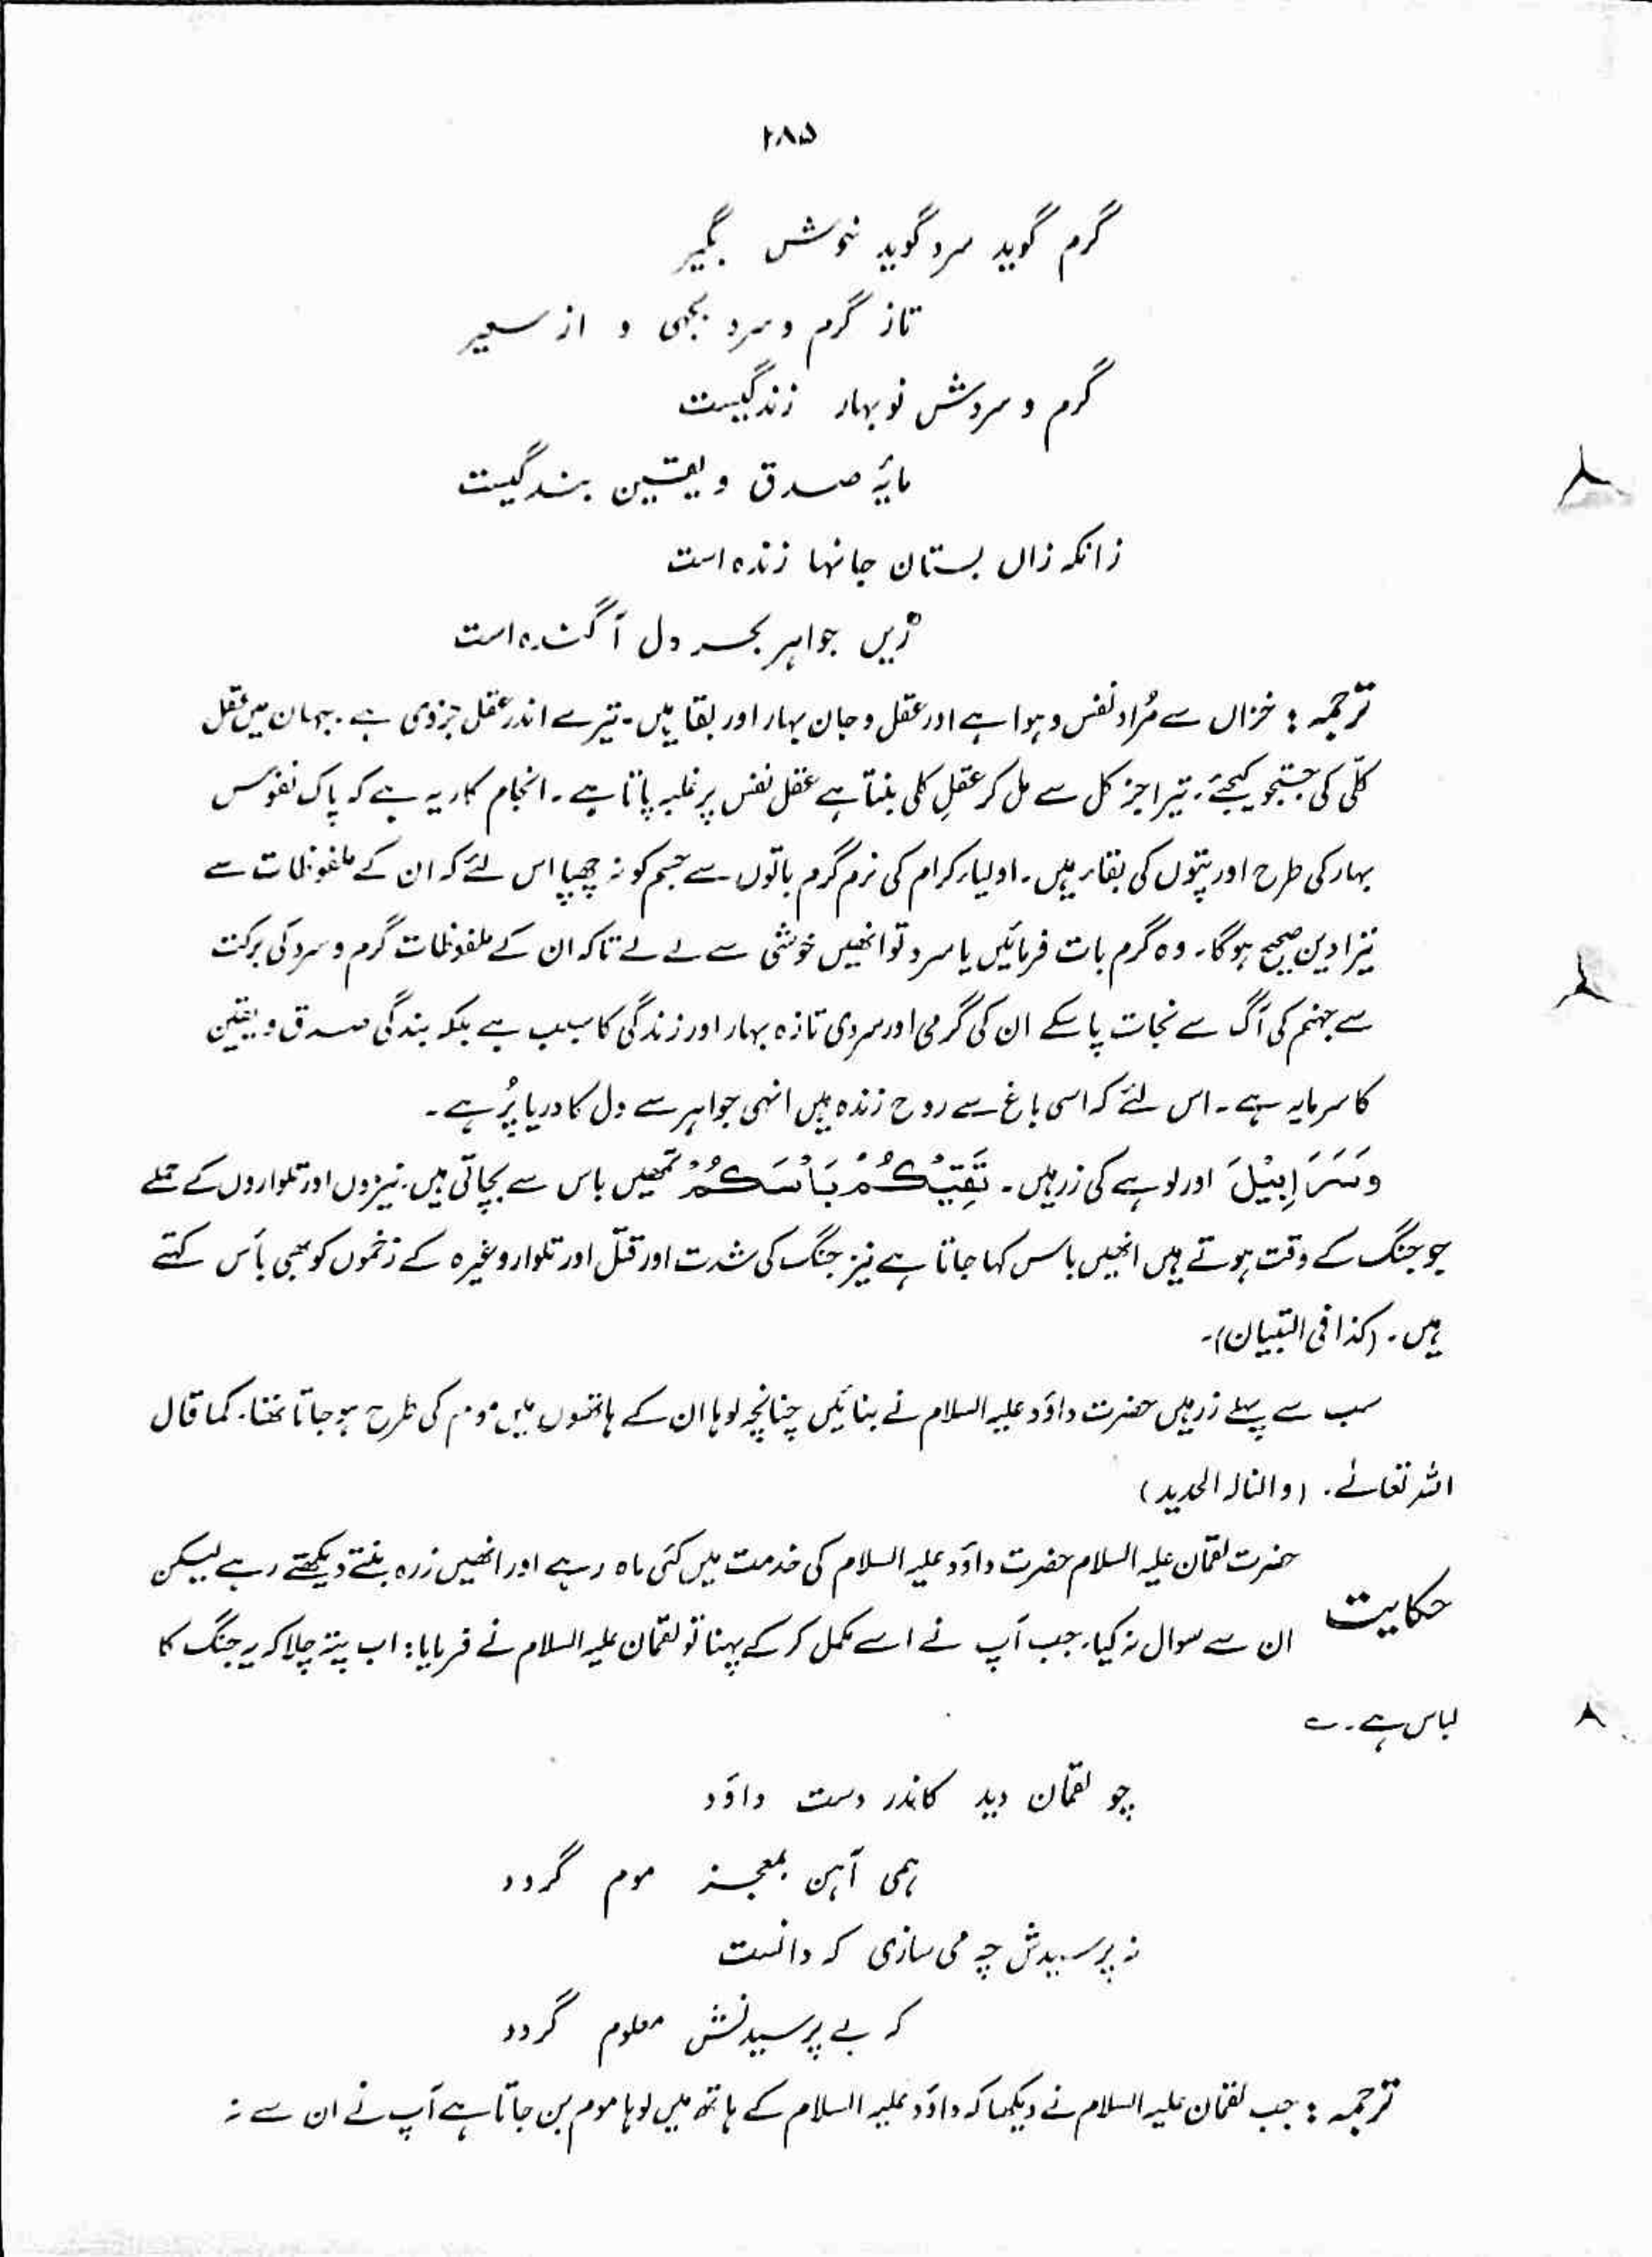 ۲۸۵
گرم گوید سرد گوید خوش بگیر
تاز گرم و سرد بجہی و از سعیر
گرم و سردش نوبہار زندگیست
مایۂ صدق و یقین بندگیست
زانکہ زاں بستان جانہا زندہ است
زیں جواہر بحر دل آگندہ است
ترجمہ : خزاں سے مُراد نفس و ہوا ہے اور عقل و جان بہار اور بقا ہیں۔ تیرے اندر عقل جزوی ہے۔ جہان میں عقل
کلّی کی جستجو کیجئے۔ تیرا جز کل سے مل کر عقلِ کلی بنتا ہے عقل نفس پر غلبہ پاتا ہے۔ انجام کار یہ ہے کہ پاک نفوس
بہار کی طرح اور پتوں کی بقاء ہیں۔ اولیاء کرام کی نرم گرم باتوں سے جسم کو نہ چھپا اس لئے کہ ان کے ملفوظات سے
تیرا دین صحیح ہوگا۔ وہ گرم بات فرمائیں یا سرد تو انھیں خوشی سے لے لے تاکہ ان کے ملفوظات گرم و سرد کی برکت
سے جہنم کی آگ سے نجات پا سکے ان کی گرمی اور سردی تازہ بہار اور زندگی کا سبب ہے بلکہ بندگی صدق و یقین
کا سرمایہ ہے۔ اس لئے کہ اسی باغ سے روح زندہ ہیں انہی جواہر سے دل کا دریا پُر ہے۔
وَسَرَابِيْلَ اور لوہے کی زرہیں۔ تَقِيْكُمْ بَاْسَكُمْ تمھیں باس سے بچاتی ہیں۔ نیزوں اور تلواروں کے حملے
جو جنگ کے وقت ہوتے ہیں انھیں باس کہا جاتا ہے نیز جنگ کی شدت اور قتل اور تلوار وغیرہ کے زخموں کو بھی بأس کہتے
ہیں۔ (کذا فی التبیان)۔
سب سے پہلے زرہیں حضرت داؤد علیہ السلام نے بنائیں چنانچہ لوہا ان کے ہاتھوں میں موم کی طرح ہو جاتا تھا۔ کما قال
اللہ تعالےٰ۔ (و النالہ الحدید)
حضرت لقمان علیہ السلام حضرت داؤد علیہ السلام کی خدمت میں کئی ماہ رہے اور انھیں زرہ بنتے دیکھتے رہے لیکن
حکایت ان سے سوال نہ کیا۔ جب آپ نے اسے مکمل کر کے پہنا تو لقمان علیہ السلام نے فرمایا: اب پتہ چلا کہ یہ جنگ کا
لباس ہے۔ ؎
چو لقمان دید کاندر دست داؤد
ہمی آہن بمعجز موم گردد
نہ پرسیدش چہ می سازی کہ دانست
کہ بے پرسیدنش معلوم گردد
ترجمہ : جب لقمان علیہ السلام نے دیکھا کہ داؤد علیہ السلام کے ہاتھ میں لوہا موم بن جاتا ہے آپ نے ان سے نہ